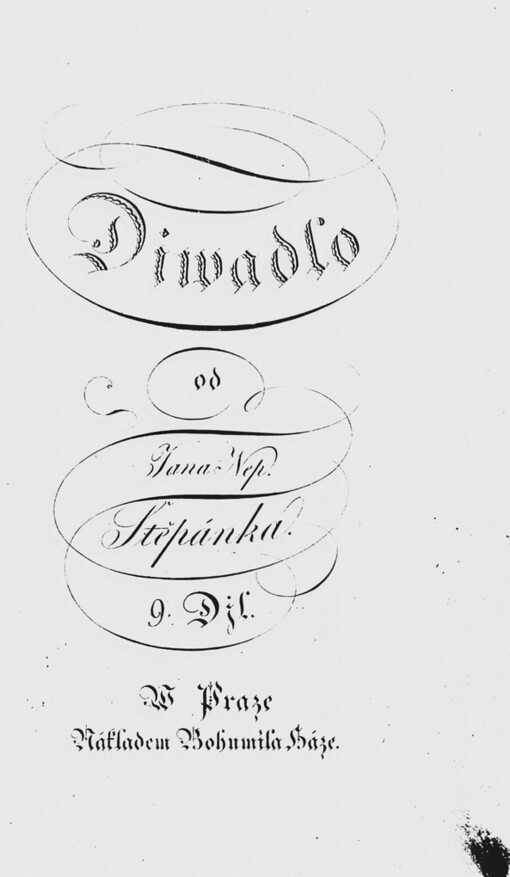 Diwadlo
od
Jana Nep.
Štěpánka.
9. Djl.
W Praze
Nákladem Bohumila Háze.